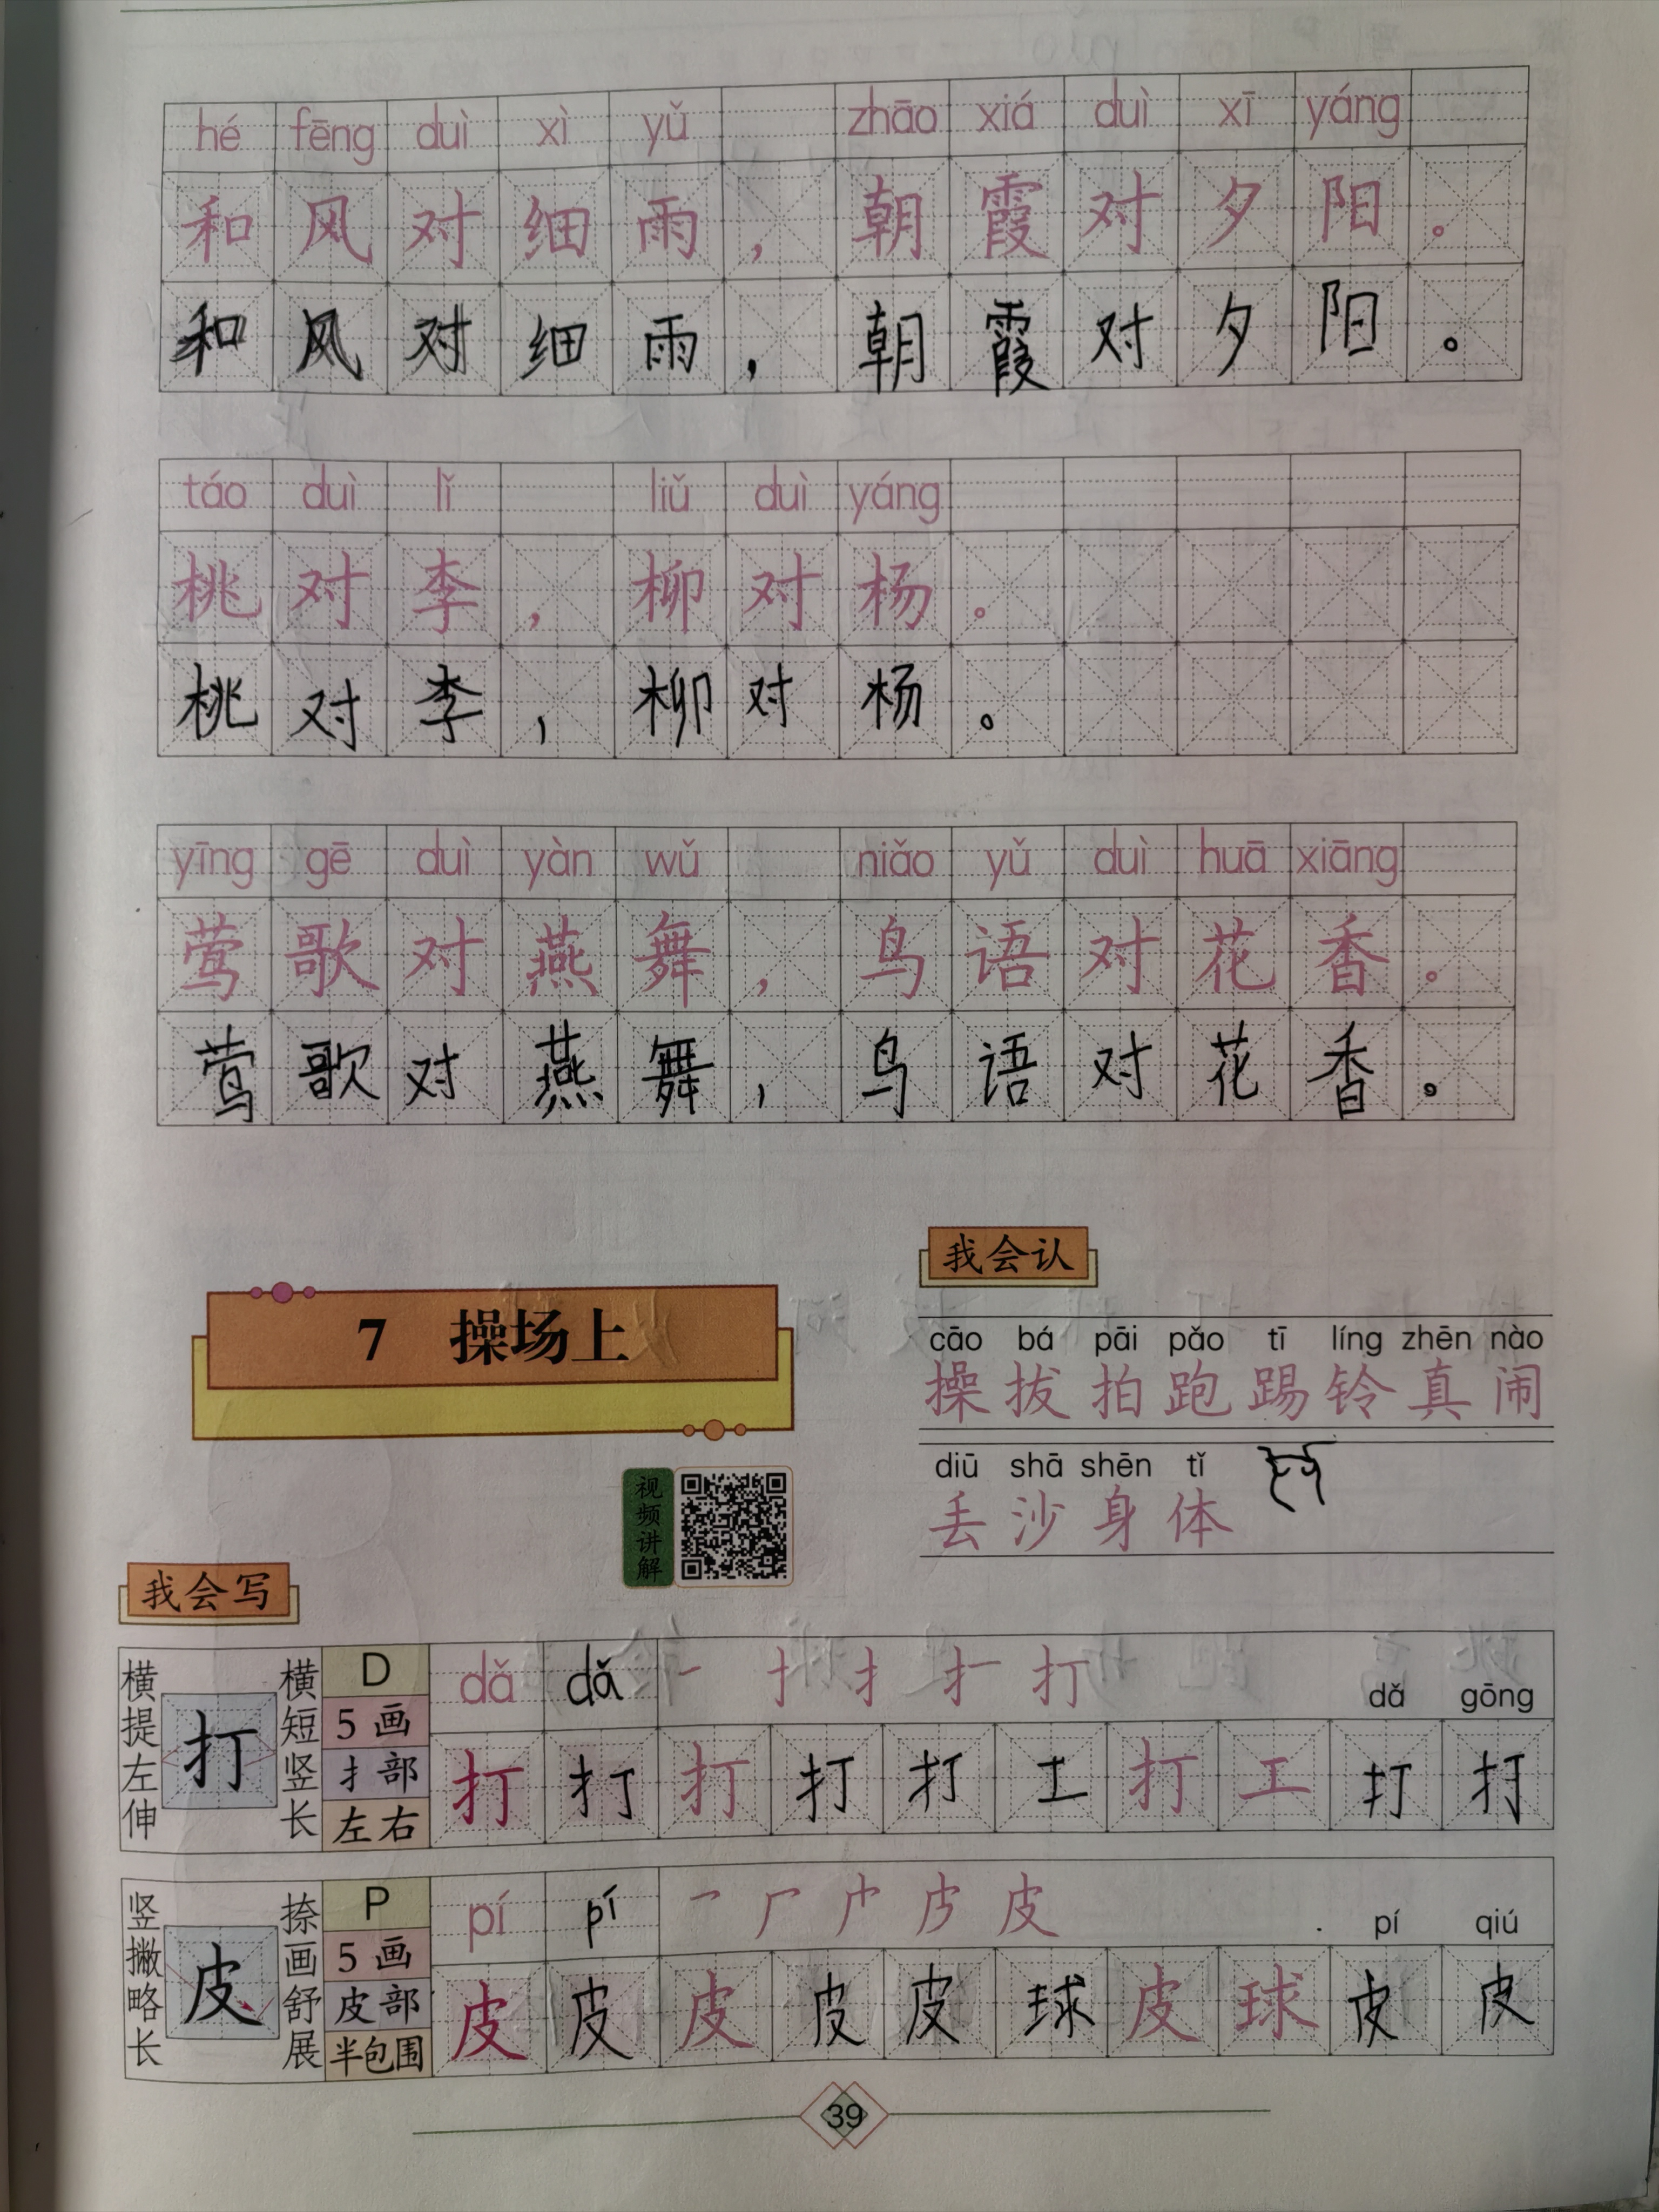 hé fēng duì xì yǔ zhāo xiá duì xī yáng
和风对细雨，朝霞对夕阳。
和风对细雨，朝霞对夕阳。
táo duì lǐ liǔ duì yáng
桃对李，柳对杨。
桃对李，柳对杨。
yīng gē duì yàn wǔ niǎo yǔ duì huā xiāng
莺歌对燕舞，鸟语对花香。
莺歌对燕舞，鸟语对花香。
7 操场上
视频讲解
我会认
cāo bá pāi pǎo tī líng zhēn nào
操拔拍跑踢铃真闹
diū shā shēn tǐ
丢沙身体
我会写
横提左伸
打
横短竖长
D
5画
扌部
左右
dǎ dǎ 一 扌 扌 扌一 打 dǎ gōng
打打打打打工打工打打
竖撇略长
皮
捺画舒展
P
5画
皮部
半包围
pí pí 皮 pí qiú
皮皮皮皮皮球皮球皮皮
39